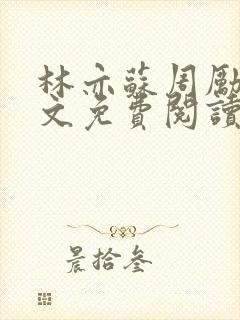 林亦蘇周勵
文免費閱讀
晨拾叁